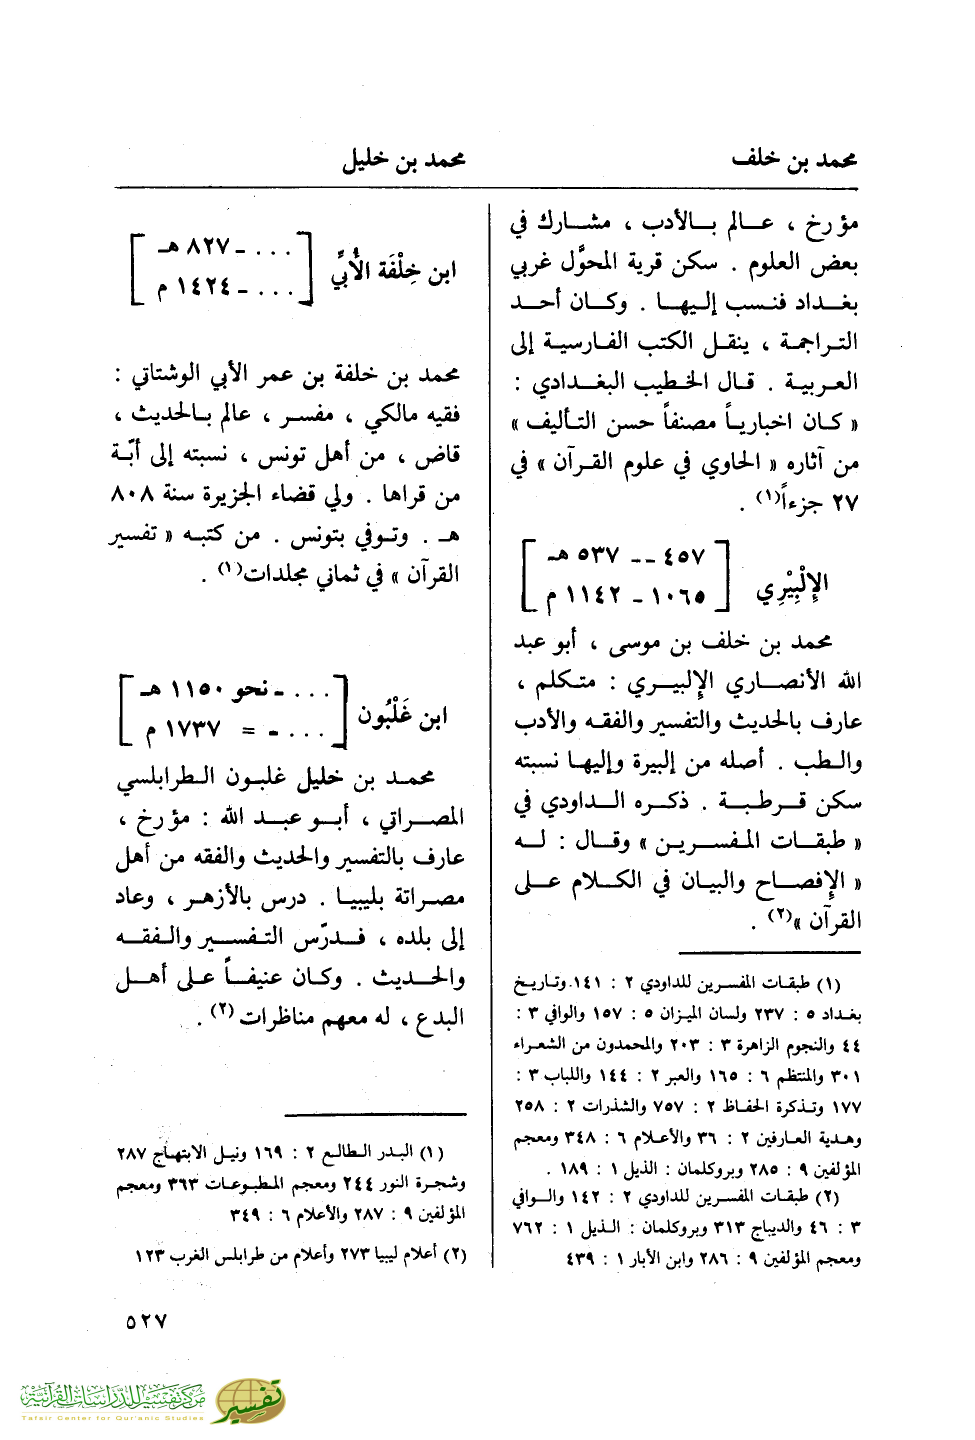 محمد بن خلف
محمد بن خليل
مؤرخ ، عالم بالأدب ، مشارك في
بعض العلوم . سكن قرية المحوَّل غربي
بغداد فنسب إليها . وكان أحد
التراجمة ، ينقل الكتب الفارسية إلى
العربية . قال الخطيب البغدادي :
« كان اخبارياً مصنفاً حسن التأليف »
من آثاره « الحاوي في علوم القرآن » في
٢٧ جزءاً(١) .
الإِلْبِيْرِي
[ ٤٥٧ ــ ٥٣٧ هـ
١٠٦٥ ـ ١١٤٢ م ]
محمد بن خلف بن موسى ، أبو عبد
الله الأنصاري الإلبيري : متكلم ،
عارف بالحديث والتفسير والفقه والأدب
والطب . أصله من إلبيرة وإليها نسبته
سكن قرطبة . ذكره الداودي في
« طبقات المفسرين » وقال : له
« الإفصاح والبيان في الكلام على
القرآن »(٢) .
(١) طبقات المفسرين للداودي ٢ : ١٤١ وتاريخ
بغداد ٥ : ٢٣٧ ولسان الميزان ٥ : ١٥٧ والوافي ٣ :
٤٤ والنجوم الزاهرة ٣ : ٢٠٣ والمحمدون من الشعراء
٣٠١ والمنتظم ٦ : ١٦٥ والعبر ٢ : ١٤٤ واللباب ٣ :
١٧٧ وتذكرة الحفاظ ٢ : ٧٥٧ والشذرات ٢ : ٢٥٨
وهدية العارفين ٢ : ٣٦ والأعلام ٦ : ٣٤٨ ومعجم
المؤلفين ٩ : ٢٨٥ وبروكلمان : الذيل ١ : ١٨٩ .
(٢) طبقات المفسرين للداودي ٢ : ١٤٢ والوافي
٣ : ٤٦ والديباج ٣١٣ وبروكلمان : الذيل ١ : ٧٦٢
ومعجم المؤلفين ٩ : ٢٨٦ وابن الأبار ١ : ٤٣٩
ابن خِلْفَة الأُبِّي
[ . . . ـ ٨٢٧ هـ
. . . ـ ١٤٢٤ م ]
محمد بن خلفة بن عمر الأبي الوشتاتي :
فقيه مالكي ، مفسر ، عالم بالحديث ،
قاض ، من أهل تونس ، نسبته إلى أبّة
من قراها . ولي قضاء الجزيرة سنة ٨٠٨
هـ . وتوفي بتونس . من كتبه « تفسير
القرآن » في ثماني مجلدات(١) .
ابن غَلْبُون
[ . . . ـ نحو ١١٥٠ هـ
. . . ـ = ١٧٣٧ م ]
محمد بن خليل غلبون الطرابلسي
المصراتي ، أبو عبد الله : مؤرخ ،
عارف بالتفسير والحديث والفقه من أهل
مصراتة بليبيا . درس بالأزهر ، وعاد
إلى بلده ، فدرّس التفسير والفقه
والحديث . وكان عنيفاً على أهل
البدع ، له معهم مناظرات (٢) .
(١) البدر الطالع ٢ : ١٦٩ ونيل الابتهاج ٢٨٧
وشجرة النور ٢٤٤ ومعجم المطبوعات ٣٦٣ ومعجم
المؤلفين ٩ : ٢٨٧ والأعلام ٦ : ٣٤٩
(٢) أعلام ليبيا ٢٧٣ وأعلام من طرابلس الغرب ١٢٣
٥٢٧
مركز تفسير للدراسات القرآنية
Tafsir Center for Qur'anic Studies
تفسير